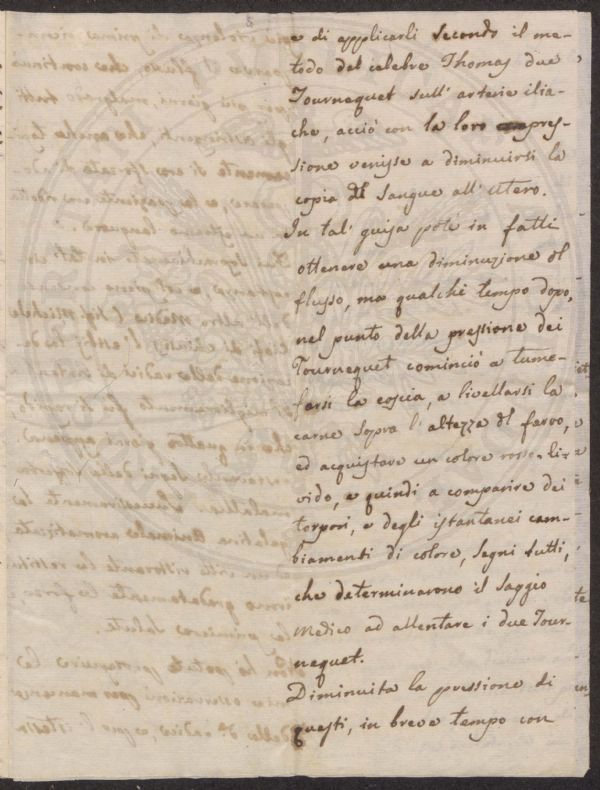 e di applicarli secondo il me-
todo del celebre Thomas due
Tournequet sull' arterie ilia-
che, acciò con la loro pres-
sione venisse a diminuirsi la
copia del Sangue all' utero.
In tal' guisa potè in fatti
ottenere una diminuzione del
flusso, ma qualche tempo dopo,
nel punto della pressione dei
Tournequet cominciò a tume-
farsi la coscia, a livellarsi la
carne sopra l' altezza del
ed acquistare un colore rosso-li-
vido, e quindi a comparire dei
torpori, e degli istantanei cam-
biamenti di colore, segni tutti,
che determinarono il saggio
Medico ad allentare i due Tour-
nequet.
Diminuita la pressione di
questi, in breve tempo con